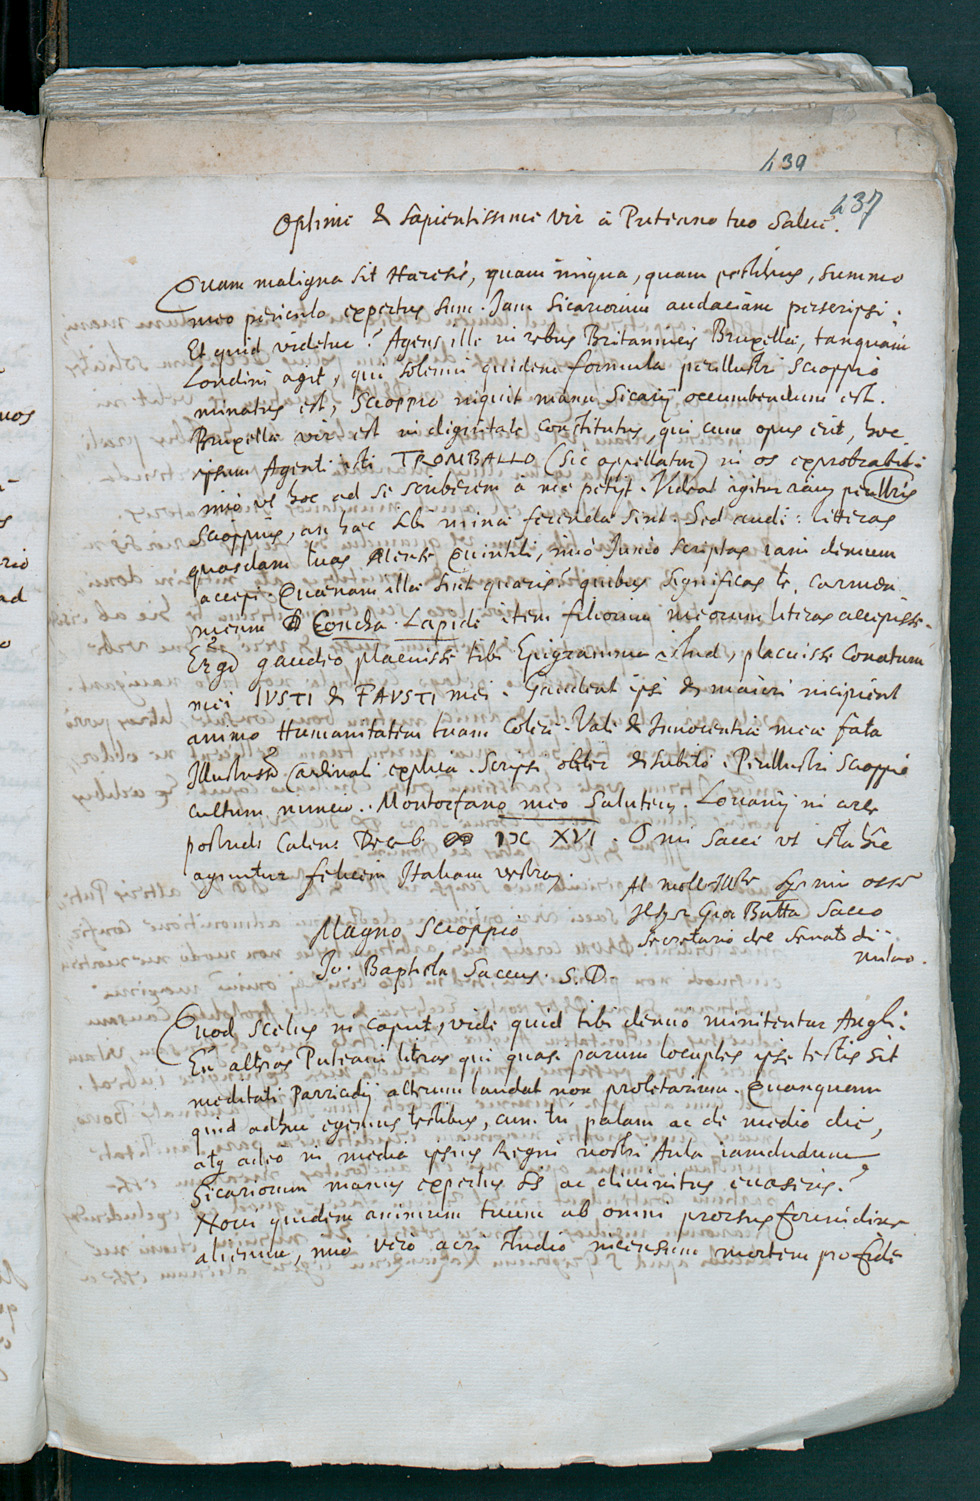 439
437
Optime & sapientissime vir à Puteano tuo Salue.
Quam maligna sit Haeresis, quam iniqua, quam pestilens, summo
meo periculo expertus sum. Iam Sicariorum audaciam perscripsi:
Et quid videtur? Agens ille in rebus Britannicis Bruxellae, tanquam
Londini agit, qui solemni quidem formula perillustri Scioppio
minatus est, Scioppio inquit manu Sicarij occumbendum est.
Bruxellae vir est in dignitate constitutus, qui cum opus erit, hoc
ipsum Agenti isti TROMBALLO (sic appellatur) in os exprobrabit:
imò vt hoc ad se scriberem à me petijt. Videat igitur iam perillris
Scioppius, an hae sibi minae ferendae sint. Sed audi: litteras
quasdam tuas Mense Quintili, imò Junio scriptas iam demum
accepi. Quaenam illae sint quaeris? quibus significas te, carmen
meum de Concha Lapide item filiorum meorum literas accepisse.
Ego gaudeo placuisse tibi Epigramma istud, placuisse Conatum
mei IVSTI & FAVSTI mei. Gaudent ipsi & maiori incipient
animo Humanitatem tuam Colere. Vale & Innocentiae meae fata
Illustrss.o Cardinali explica. Scripsi obiter & subitò. Perillustri Scioppio
cultum nuncio. Montorfano meo Salutem. Louanij in arce
postridie Calend Decemb. IƆC XVI. O mi Sacci vt ista hîc
aguntur felicem Italiam vestram.
Al molto Illre Sigr mio ossmo
Il Sigr Gioa Batta Sacco
Secretario del Senato di
Milano.
Magno Scioppio
Jo. Baptista Saccus. S. D.
Quod Scelus in caput, vide quid tibi denuo minitentur Angli.
En alteras Puteani literas qui quasi parum locuples ipse testis sit
meditati Parricidij alterum laudat non proletarium. Quanquam
quid adhuc egemus testibus, cum tu palam ac de medio die,
atq adeò in media ipsius Regni nostri Aula iamdudum
Sicariorum manus expertus sis ac diuinitus euaseris?
Noui quidem animum tuum ab omni prorsus formidine
alienum, imò verò acri studio incensum mortem pro fide